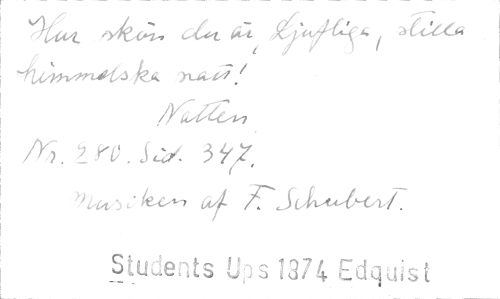 Hur skön du är, Ljufliga, stilla
himmelska natt!
Natten
Nr. 280. Sid. 347.
Musiken af F. Schubert.
Students Ups 1874 Edquist